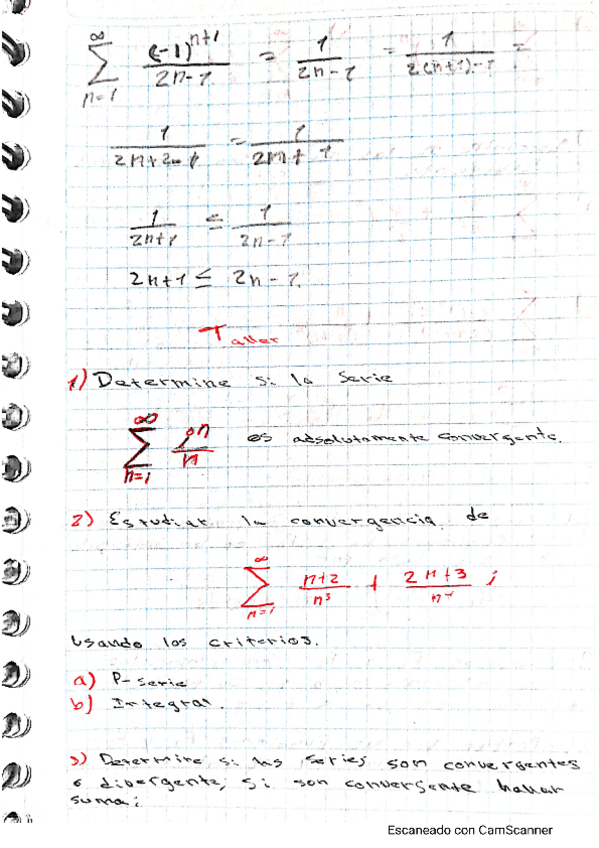 ∞
∑ (-1)^(n+1) / (2n-1) = 1/(2n-1) = 1/(2(n+1)-1) =
n=1
1/(2n+2-1) = 1/(2n+1)
1/(2n+1) ≤ 1/(2n-1)
2n+1 ≤ 2n-1
Taller
1) Determine si la serie
∞
∑ n/n es adsolutamente convergente.
n=1
2) Estudiar la convergencia de
∞
∑ (n+2)/n³ + (2n+3)/n ;
n=1
Usando los criterios.
a) P-serie
b) Integral.
3) Determine si las series son convergentes
o divergente, si son convergente hallar
suma:
Escaneado con CamScanner